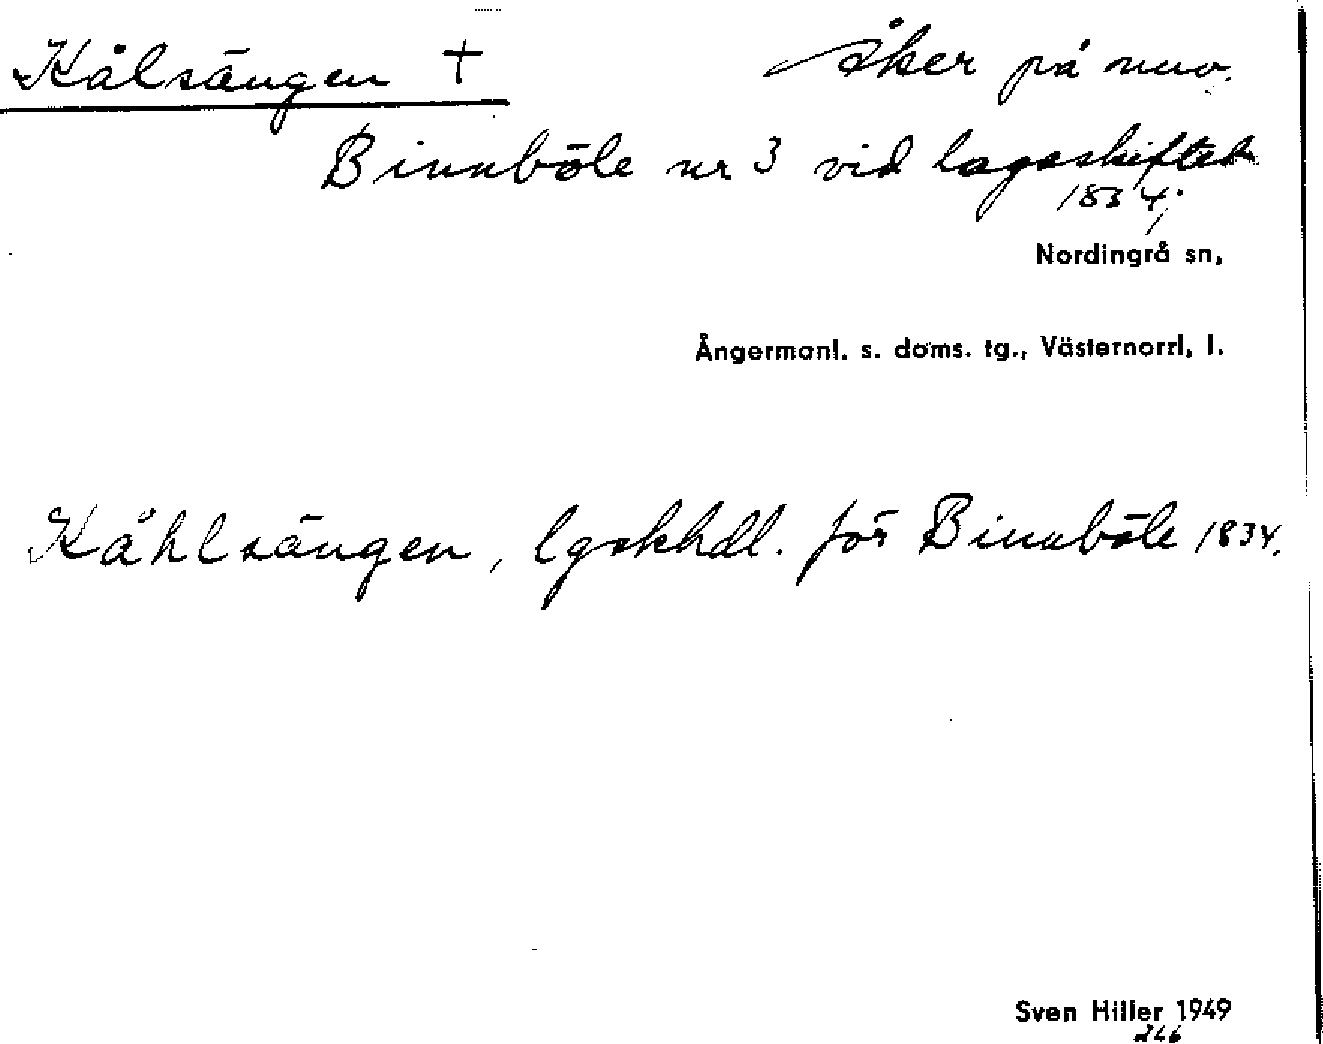 Kålsängen † åker på nuv.
Binnböle nr 3 vid lagaskiftet
1834;
Nordingrå sn,
Ångermanl. s. doms. tg., Västernorrl. l.
Kåhlsängen, lgskhdl. för Binnböle 1834.
Sven Hiller 1949
246